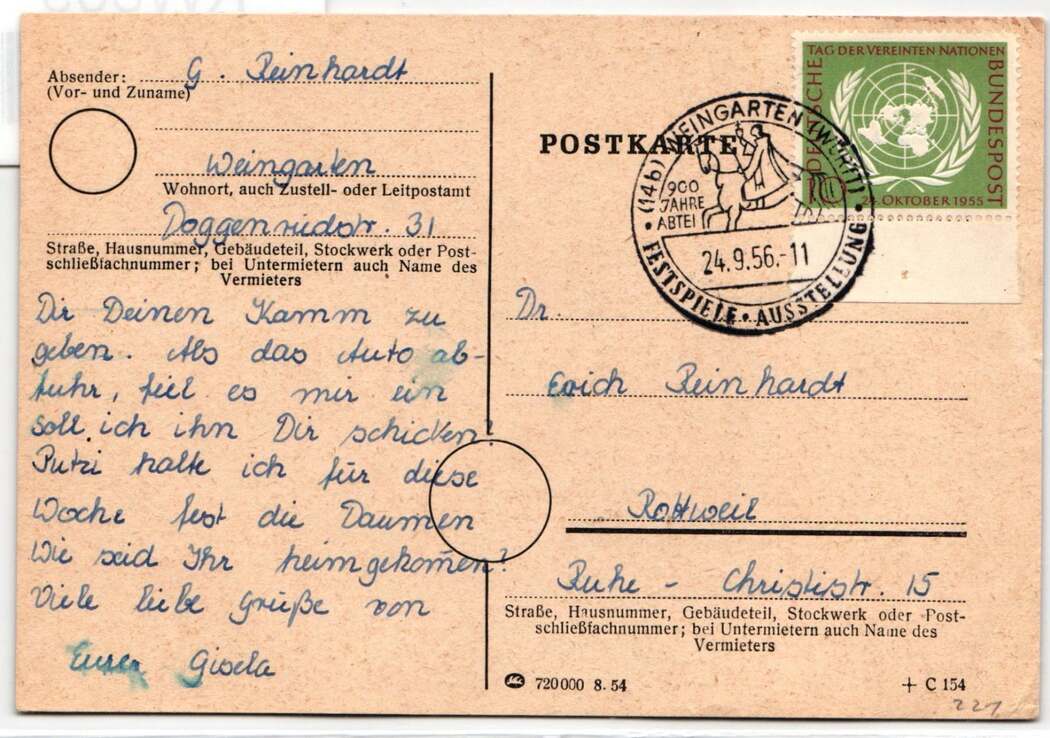 Absender: G. Reinhardt
(Vor- und Zuname)
Weingarten
Wohnort, auch Zustell- oder Leitpostamt
Doggenriedstr. 31
Straße, Hausnummer, Gebäudeteil, Stockwerk oder Post-
schließfachnummer; bei Untermietern auch Name des
Vermieters
Dir Deinen Kamm zu
geben. Als das Auto ab-
fuhr, fiel es mir ein
Soll ich ihn Dir schicken?
Putzi halte ich für diese
Woche fest die Daumen
Wie seid Ihr heimgekommen?
Viele liebe Grüße von
Eurer Gisela
POSTKARTE
TAG DER VEREINTEN NATIONEN
DEUTSCHE BUNDESPOST
10
24. OKTOBER 1955
(14b) WEINGARTEN (WÜRTT)
900
JAHRE
ABTEI
24.9.56.-11
FESTSPIELE • AUSSTELLUNG
Dr.
Erich Reinhardt
Rottweil
Ruhe - Christistr. 15
Straße, Hausnummer, Gebäudeteil, Stockwerk oder Post-
schließfachnummer; bei Untermietern auch Name des
Vermieters
720000 8. 54
C 154
221